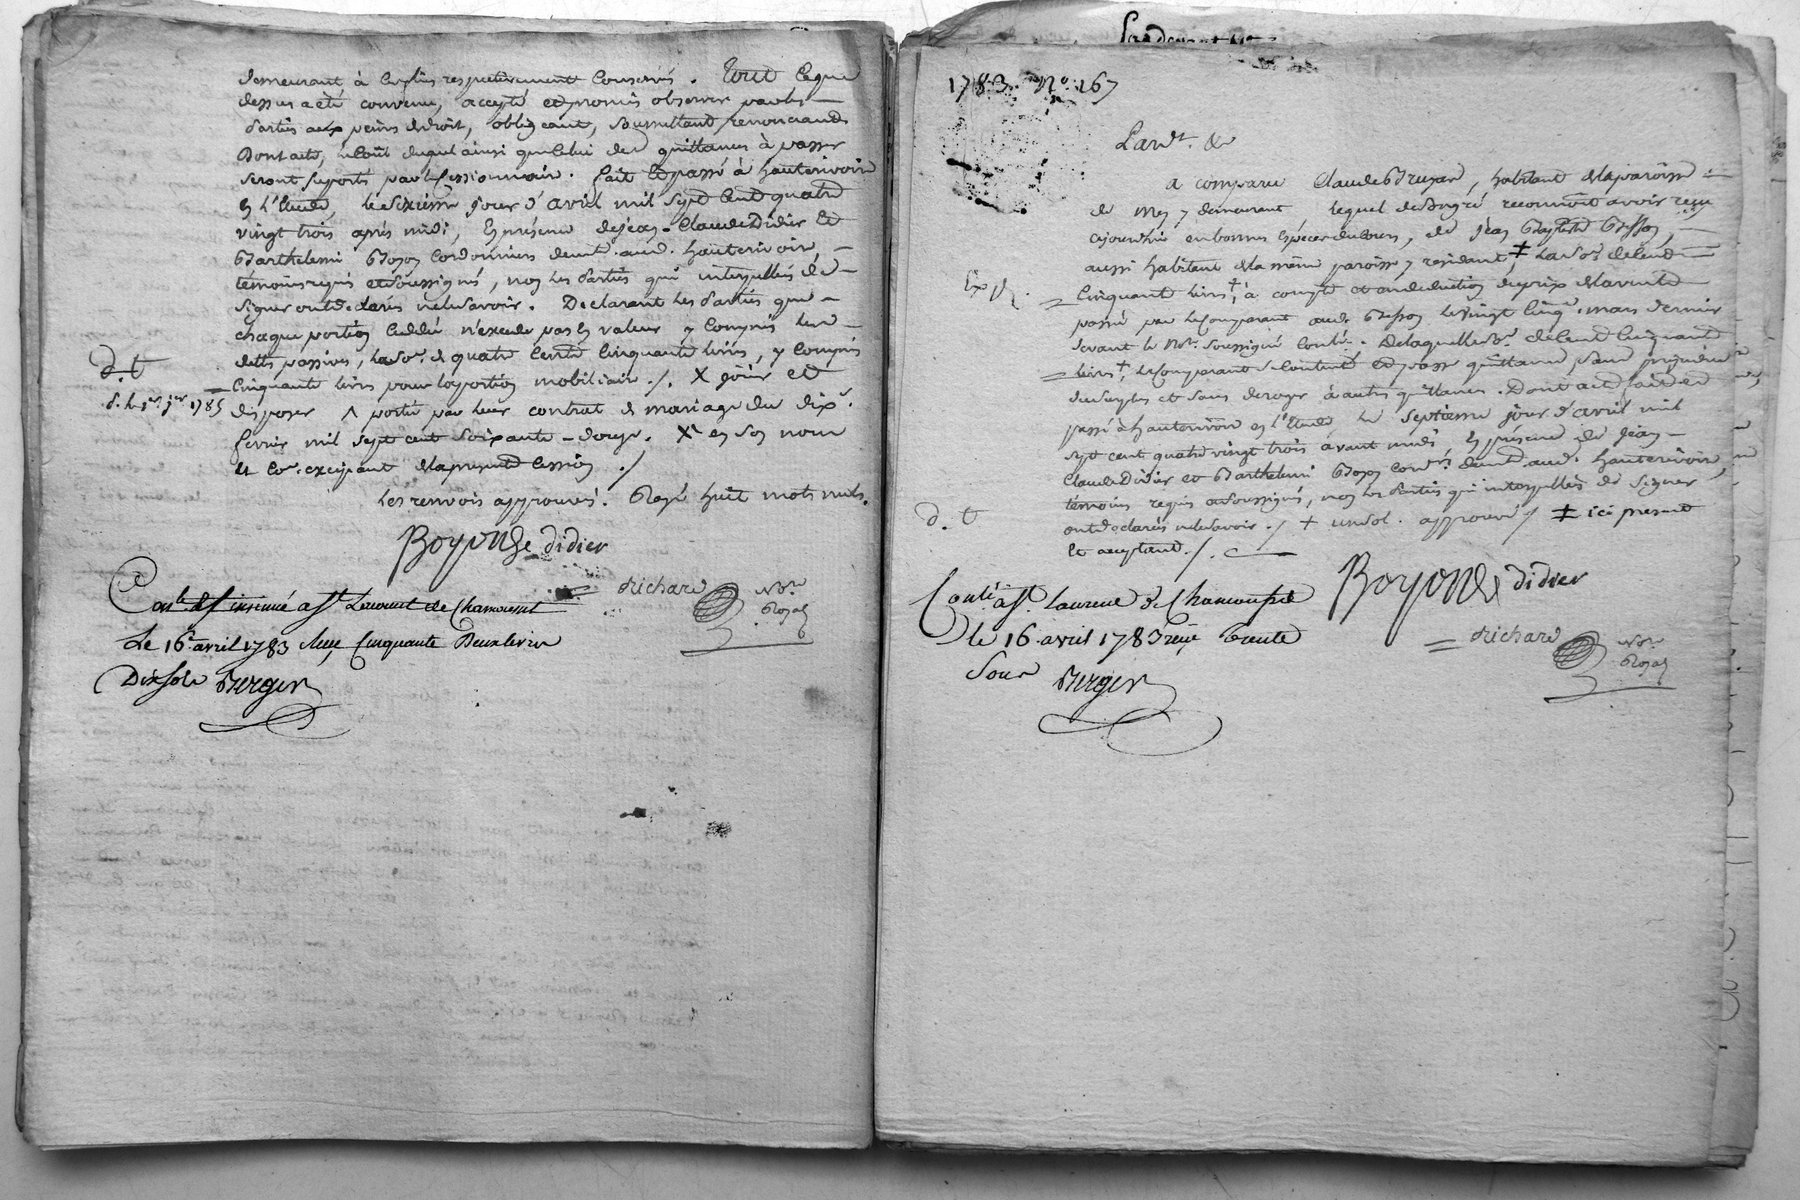 demeurant, à Cuplus respectivement Conservés. Tout Ceque
dessus a été convenu, accepté et promis observer par les
Parties aux peines de droit, obligeant, Soumettant, renonceant
Dont acte, le Coût duquel ainsi que Celui des quittances à passer
seront suportés par le Cessionnaire. fait et passé à hauterivoire
En l'Etude le Sixième jour d'avril mil Sept Cent quatre
vingt trois après midi, En présence de jean-Claude Didier Et
Barthelemi Boyon Cordonniers demt. aud. hauterivoire
témoins requis et Soussignés, non les Parties qui interpellées de
Signer ont déclarés ne le Savoir. Declarant les Parties que
chaque portion Ceddée n'excede pas En valeur y Compris les
dettes passives, la So.e de quatre Cents Cinquante livres, y Compris
Cinquante livres pour la portion mobiliaire ./. X joüir et
disposer ^ portée par leur contrat de mariage du dix
fevrier mil sept cent Soixante-douze. X en Son nom
et Co. excipant de la presente Cession ./
d. t
d. le 1er. jer. 1785
Les renvois approuvés. Rayé huit mots nuls.
Boyon De didier
Richard No.re Royal
Contlé. et insinué à St. Laurent de Chamousset
Le 16 avril 1783 Reçu Cinquante Deux livres
Dix sols Berger
1783. No. 167
Pardt. &
a comparu Claude Bruyas, habitant de la paroisse
de Mey y demeurant, lequel de Son gré reconnoit avoir reçu
ajourdhui en bonnes Especes du Cours, de jean Baptiste Besson,
aussi habitant de la même paroisse y residant, ‡ la So.e de Cent
Exp.
Cinquante livres †, à compte et en deduction du prix de la vente
passée par le Comparant aud. Besson le vingt Cinq mars dernier
devant le No.re Soussigné Contlé. De laquelle So.e de Cent Cinquante
livres †, le Comparant Se Contente Et passe quittance Sans prejudice
du Surplus et Sans deroger à autres quittances. Dont acte fait et
passé à hauterivoire en l'Etude le Septieme jour d'avril mil
sept cent quatre vingt trois avant midi En présence de jean
Claude Didier et Barthelemi Boyon Cord.rs demt. aud. hauterivoire,
témoins requis et Soussignés, non les Parties qui interpellées de Signer
d. t
ont déclarés ne le Savoir ./ † un Sol. approuvé / ‡ ici present
Et acceptant ./.
Boyon De didier
Richard No.re Royal
Contlé. à St. Laurent de Chamousset
le 16 avril 1783 reçu trente
Sous Berger